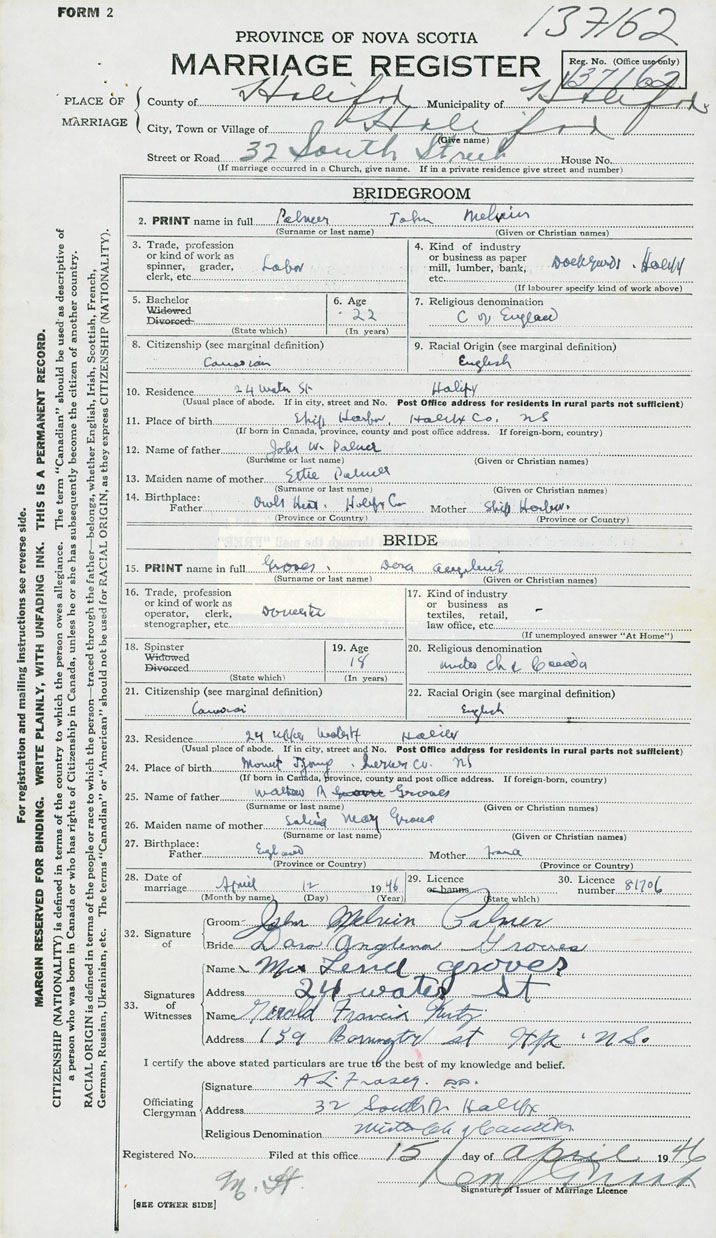 FORM 2
137/62
PROVINCE OF NOVA SCOTIA
MARRIAGE REGISTER
Reg. No. (Office use only)
137162
PLACE OF MARRIAGE
County of Halifax Municipality of Halifax
City, Town or Village of Halifax
(Give name)
Street or Road 32 South Street House No.
(If marriage occurred in a Church, give name. If in a private residence give street and number)
BRIDEGROOM
2. PRINT name in full Palmer John Melvin
(Surname or last name) (Given or Christian names)
3. Trade, profession or kind of work as spinner, grader, clerk, etc. Labor
4. Kind of industry or business as paper mill, lumber, bank, etc. Dockyards. Halifx
(If labourer specify kind of work above)
5. Bachelor Widowed Divorced
(State which)
6. Age 22
(In years)
7. Religious denomination C of England
8. Citizenship (see marginal definition) Canadian
9. Racial Origin (see marginal definition) English
10. Residence 24 Water St Halifx
(Usual place of abode. If in city, street and No. Post Office address for residents in rural parts not sufficient)
11. Place of birth Ship Harbor, Halifx Co. NS
(If born in Canada, province, county and post office address. If foreign-born, country)
12. Name of father John W. Palmer
(Surname or last name) (Given or Christian names)
13. Maiden name of mother Palmer
(Surname or last name) (Given or Christian names)
14. Birthplace:
Father Owls Head. Halifx Co Mother Ship Harbor.
(Province or Country) (Province or Country)
BRIDE
15. PRINT name in full Groves. Dora
(Surname or last name) (Given or Christian names)
16. Trade, profession or kind of work as operator, clerk, stenographer, etc. Domestic
17. Kind of industry or business as textiles, retail, law office, etc. -
(If unemployed answer "At Home")
18. Spinster Widowed Divorced
(State which)
19. Age 18
(In years)
20. Religious denomination United Ch of Canada
21. Citizenship (see marginal definition) Canadian
22. Racial Origin (see marginal definition) English
23. Residence 24 Upper Water St Halifx
(Usual place of abode. If in city, street and No. Post Office address for residents in rural parts not sufficient)
24. Place of birth Mount Co. NS
(If born in Canada, province, county and post office address. If foreign-born, country)
25. Name of father Groves
(Surname or last name) (Given or Christian names)
26. Maiden name of mother May
(Surname or last name) (Given or Christian names)
27. Birthplace:
Father England Mother
(Province or Country) (Province or Country)
28. Date of marriage April 12 1946
(Month by name) (Day) (Year)
29. Licence or banns
(State which)
30. Licence number 81706
32. Signature of
Groom John Melvin Palmer
Bride Dora Anglena Groves
33. Signatures of Witnesses
Name Mrs groves
Address 24 water st
Name Gerald Francis
Address 159 Barrington st Hfx N.S.
I certify the above stated particulars are true to the best of my knowledge and belief.
Officiating Clergyman
Signature A L. Fraser.
Address 32 South St Halifx
Religious Denomination United Ch of Canada
Registered No. Filed at this office 15 day of April 1946
Signature of Issuer of Marriage Licence
M. H
[SEE OTHER SIDE]
For registration and mailing instructions see reverse side.
MARGIN RESERVED FOR BINDING. WRITE PLAINLY, WITH UNFADING INK. THIS IS A PERMANENT RECORD.
CITIZENSHIP (NATIONALITY) is defined in terms of the country to which the person owes allegiance. The term "Canadian" should be used as descriptive of
a person who was born in Canada or who has rights of Citizenship in Canada, unless he or she has subsequently become the citizen of another country.
RACIAL ORIGIN is defined in terms of the people or race to which the person—traced through the father—belongs, whether English, Irish, Scottish, French,
German, Russian, Ukrainian, etc. The terms "Canadian" or "American" should not be used for RACIAL ORIGIN, as they express CITIZENSHIP (NATIONALITY).